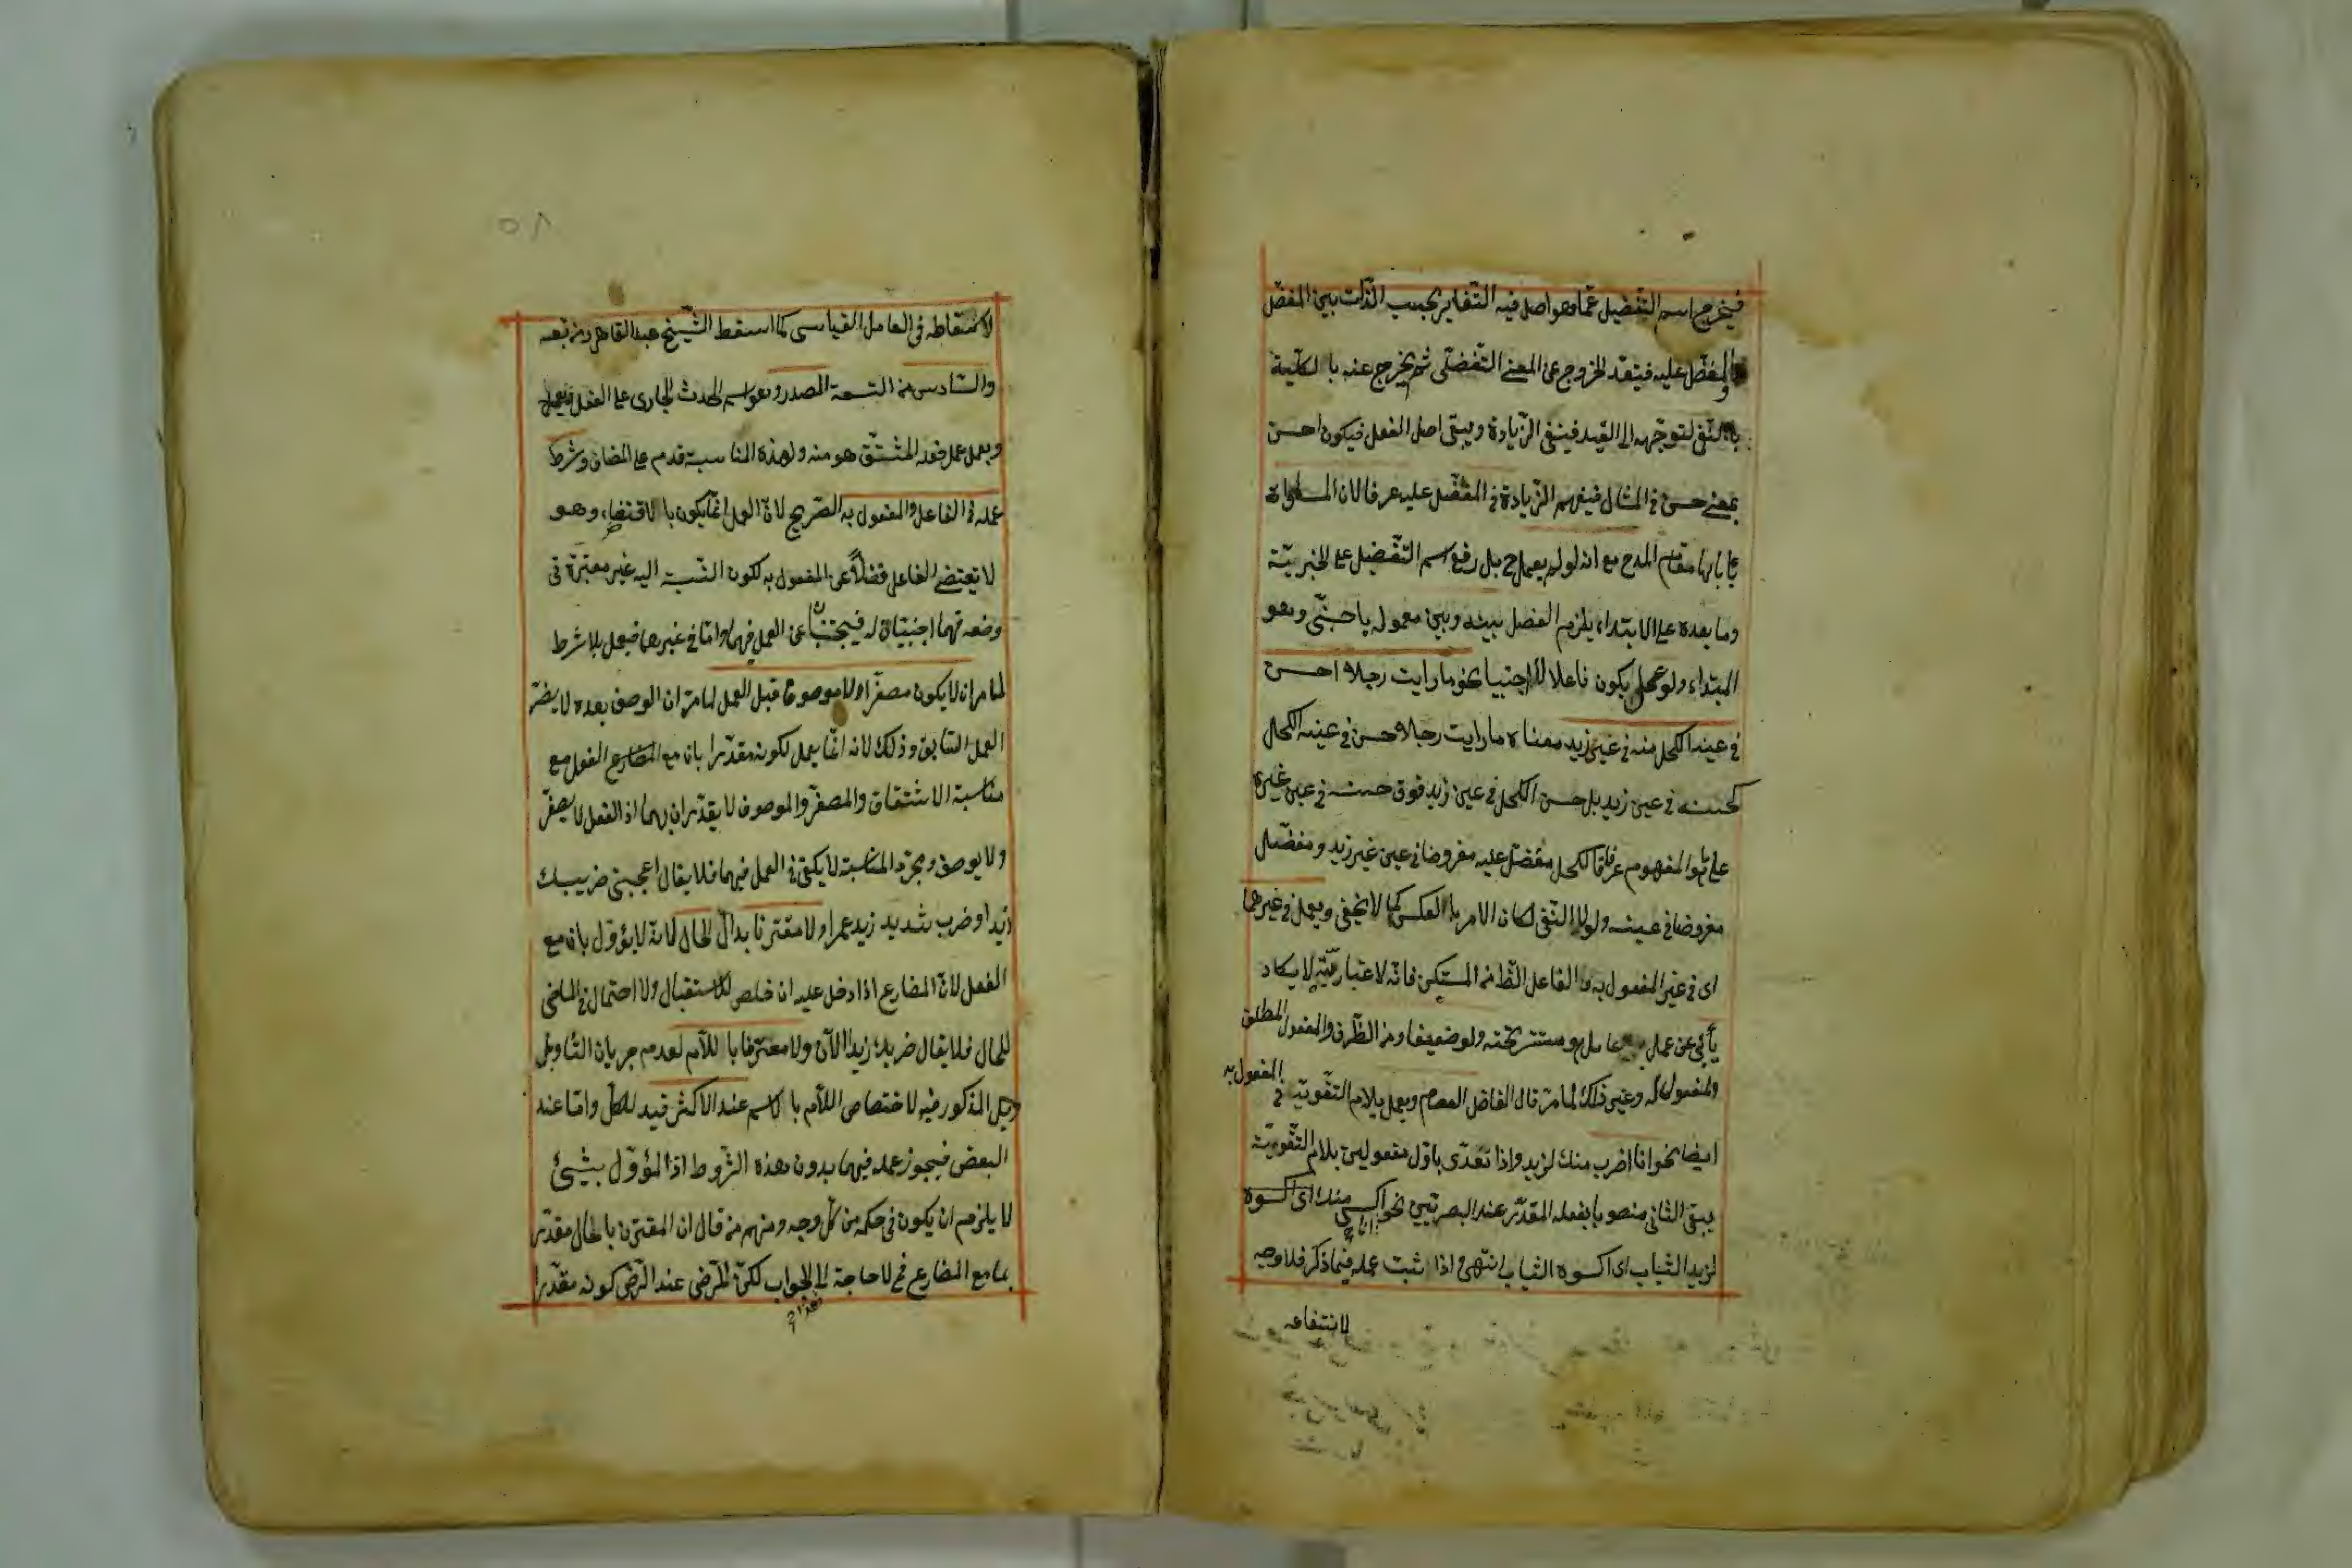 فيخرج اسم التفضيل عما هو اصل فيه التغاير بحسب الذات بين المفضل
والمفضل عليه فيتعد لخروج عن المعنى التفضلى ثم يخرج عنه بالكلية
بالنفى لتوجهه الى القيد فينتفى الزيادة ويبقى اصل الفعل فيكون احسن
بمعنى حسن فى المثال فيفهم الزيادة فى المفضل عليه عرفا لان المساواة
يأباها مقام المدح مع انه لو لم يعمل ح بل رفع اسم التفضيل على الخبرية
وما بعده على الابتداء يلزم الفصل بينه وبين معموله باجنبى وهو
المبتداء ولو عمل يكون فاعلا لا اجنبيا نحو ما رايت رجلا احسن
فى عينه الكحل منه فى عين زيد معناه ما رايت رجلا حسن فى عينه الكحل
كحسنه فى عين زيد بل حسن الكحل فى عين زيد فوق حسنه فى عين غيره
على المفهوم عرفا فالكحل مفضل عليه مفروضا فى عين غير زيد ومفضل
مفروضا فى عينه ولولا النفى لكان الامر بالعكس كما لا يخفى ويعمل فى غيرهما
اى فى غير المفعول به والفاعل الظاهر المستكن فانه لاعتباريته لا يكاد
يأبى عن عمل عامل هو مستتر تحته ولو ضعيفا ومن الظرف والمفعول المطلق
والمفعول له وغير ذلك لما مر قال الفاضل العصام ويعمل بلام التقوية فى المفعول به
ايضا نحو انا اضرب منك لزيد واذا تعدى باول مفعولين بلام التقوية
يبقى الثانى منصوبا بفعله المقدر عند البصريين نحو انا اكسى منك اى اكسوه
لزيد الثياب اى اكسوه الثياب انتهى اذا ثبت عمله فيما ذكر فلا وجه
لانتفاعه
٥٨
لاسقاطه فى العامل القياسى كما اسقط الشيخ عبد القاهر ومن تبعه
والسادس من التسعة المصدر وهو اسم الحدث الجارى على الفعل
ويعمل عمل فعله المشتق هو منه ولهذه المناسبة قدم على المضاف وشرط
عمله فى الفاعل والمفعول به الصريح لان العمل انما يكون بالاقتضاء وهو
لا يقتضى الفاعل فضلا عن المفعول به لكون النسبة اليه غير معتبرة فى
وضعه فهما اجنبيان له فيجتنبان عن العمل فيهما واما فى غيرهما فيعمل بلا شرط
لما مر ان لا يكون مصغرا ولا موصوفا قبل العمل لما مر ان الوصف بعده لا يضر
العمل السابق وذلك لانه انما يعمل لكونه مقدرا بان مع المضارع الفعل مع
مناسبة الاشتقاق والمصغر والموصوف لا يقدران بهما اذ الفعل لا يصغر
ولا يوصف ومجرد المناسبة لا يكفى فى العمل فيهما فلا يقال اعجبنى ضريبك
زيدا وضرب شديد زيد عمرا ولا مقترنا بدال الحال لانه لا يؤول بان مع
الفعل لان المضارع اذا دخل عليه ان خلص للاستقبال ولا احتمال فى الماضى
للحال فلا يقال ضربك زيدا الآن ولا معرفا باللام لعدم جريان التاويل
المذكور فيه لاختصاص اللام بالاسم عند الاكثر قيد للكل واما عند
البعض فيجوز عمله فيهما بدون هذه الشروط اذ المؤول بشيئ
لا يلزم ان يكون فى حكمه من كل وجه ومنهم من قال ان المقترن بالحال مقدر
بما مع المضارع فح لا حاجة الى الجواب لكن المرضى عند الرضى كونه مقدرا